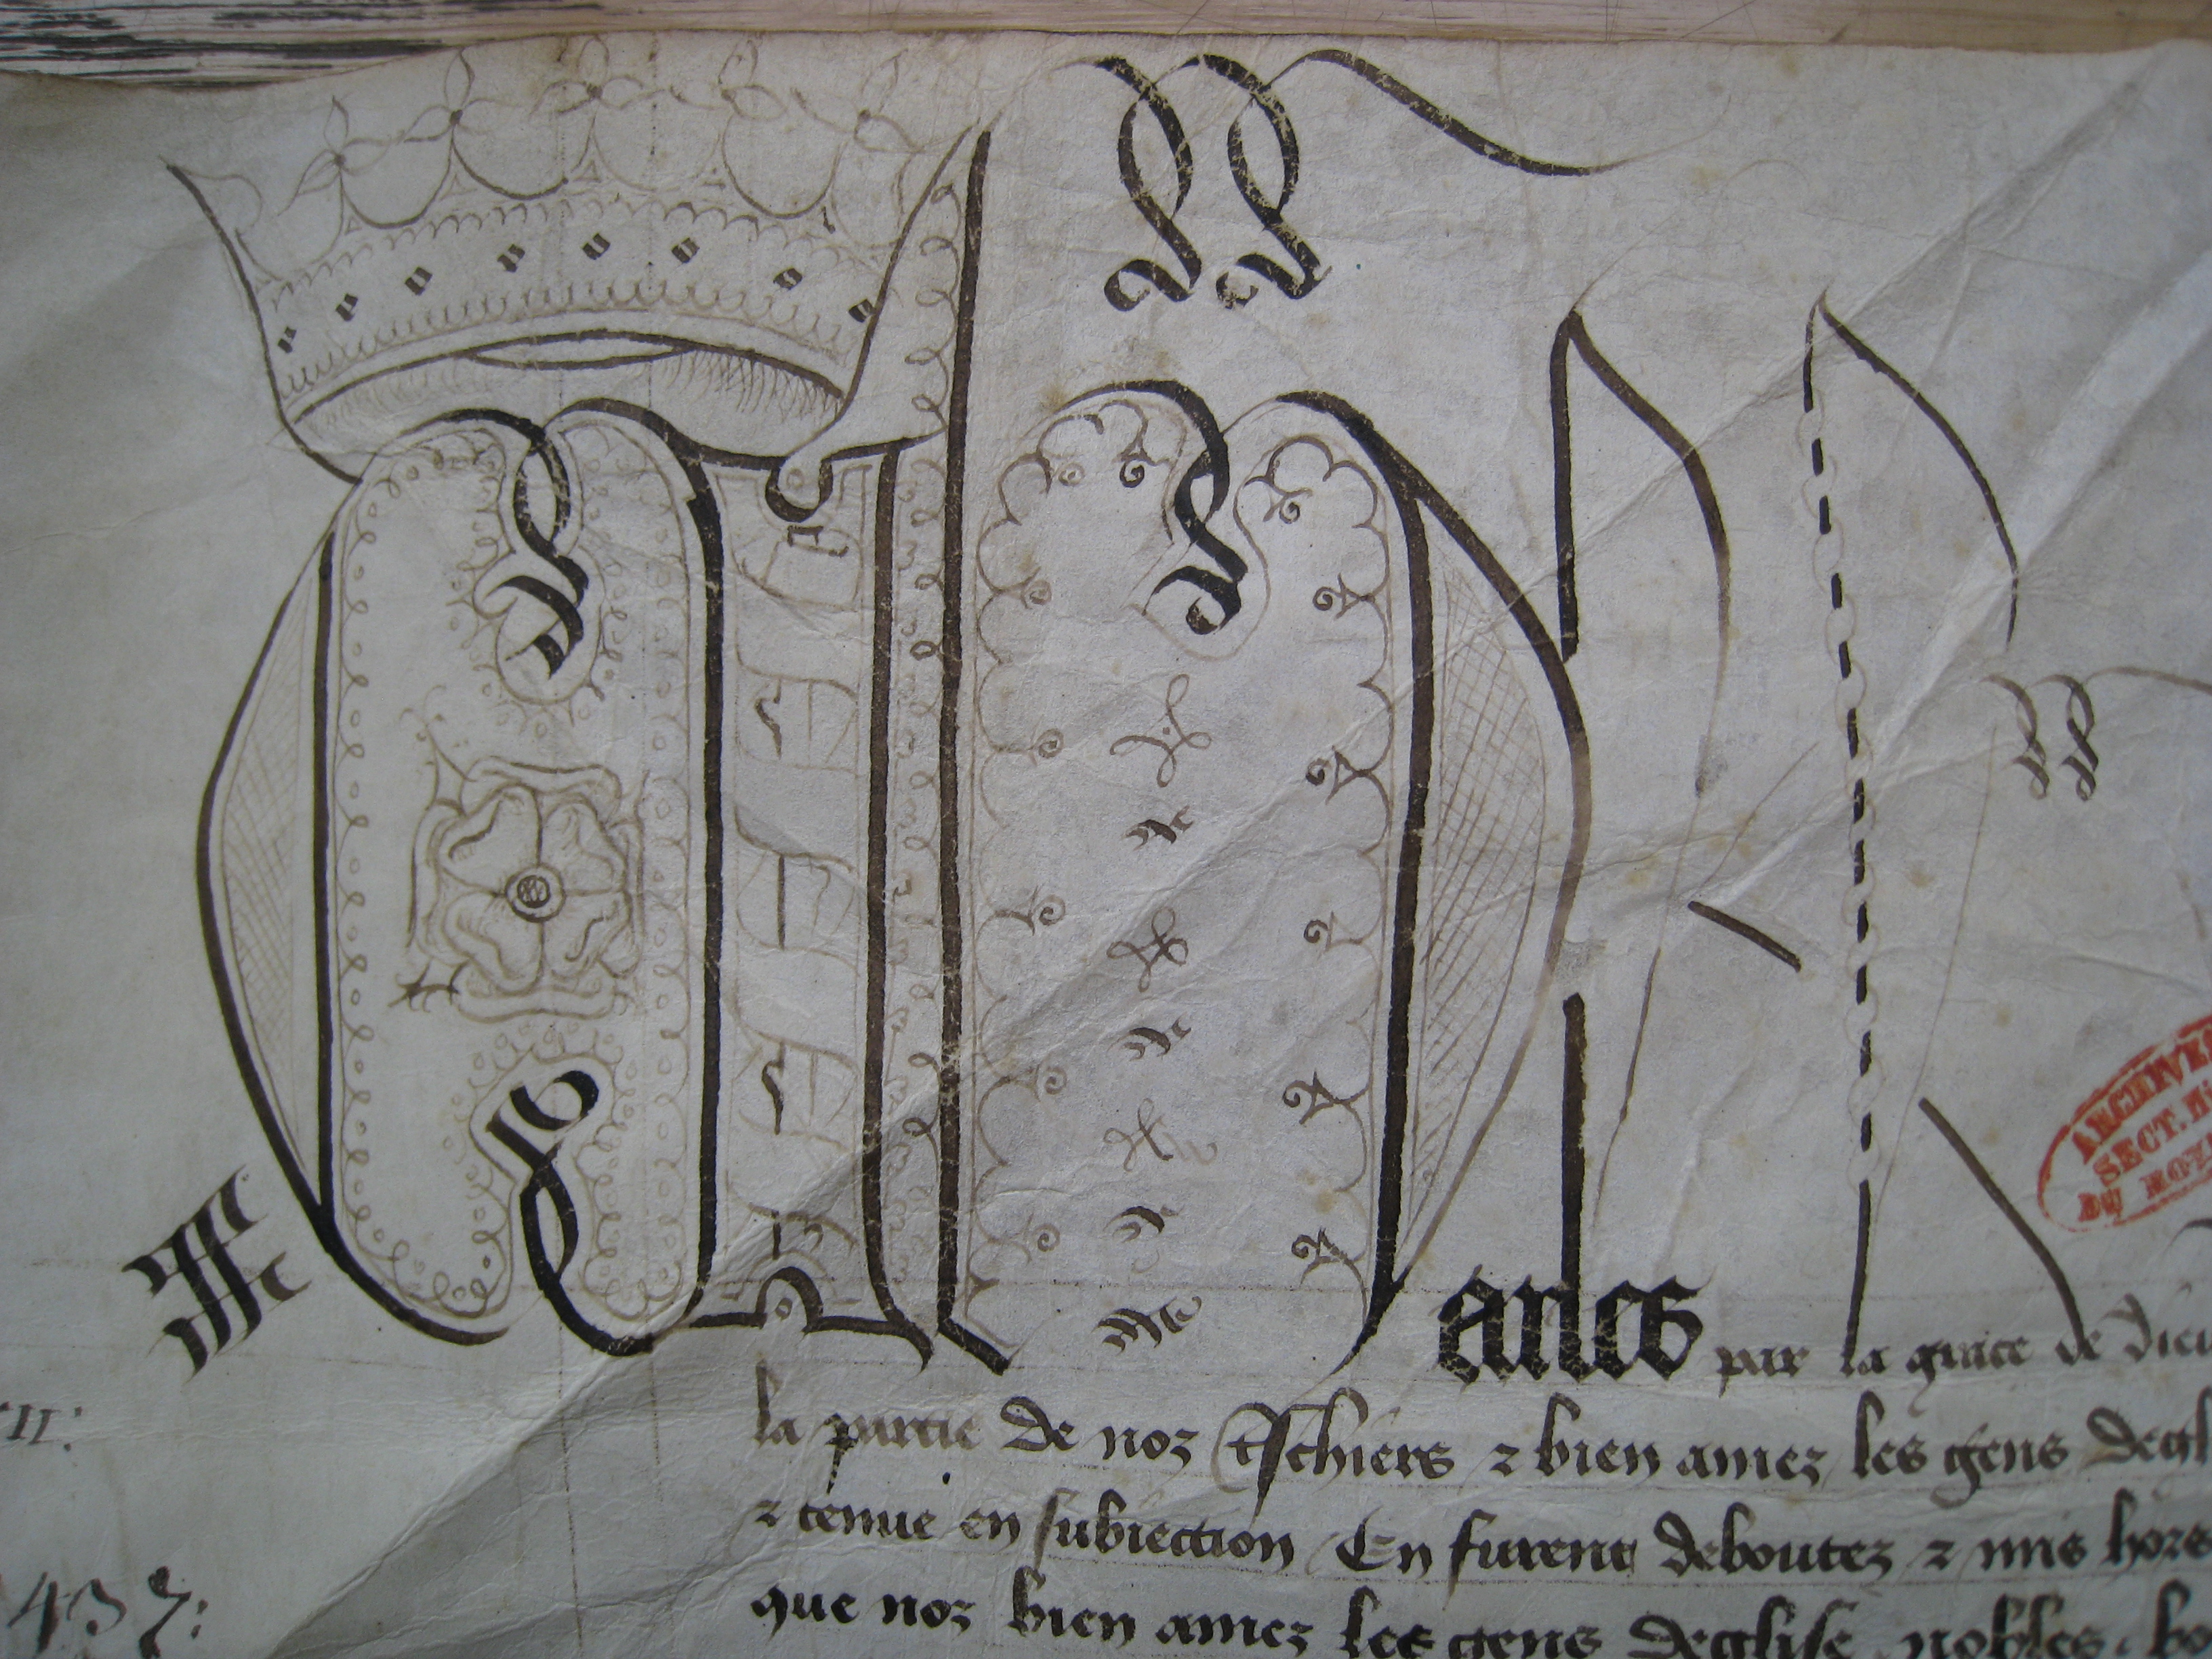 CHARles par la grace de dieu
ARCHIVES
SECT. H
DU ROY
la partie de noz tschiers ⁊ bien amez les gens degl
II:
⁊ tenue en subiection En furent deboutez ⁊ mis hors
437:
que noz bien amez les gens deglise nobles